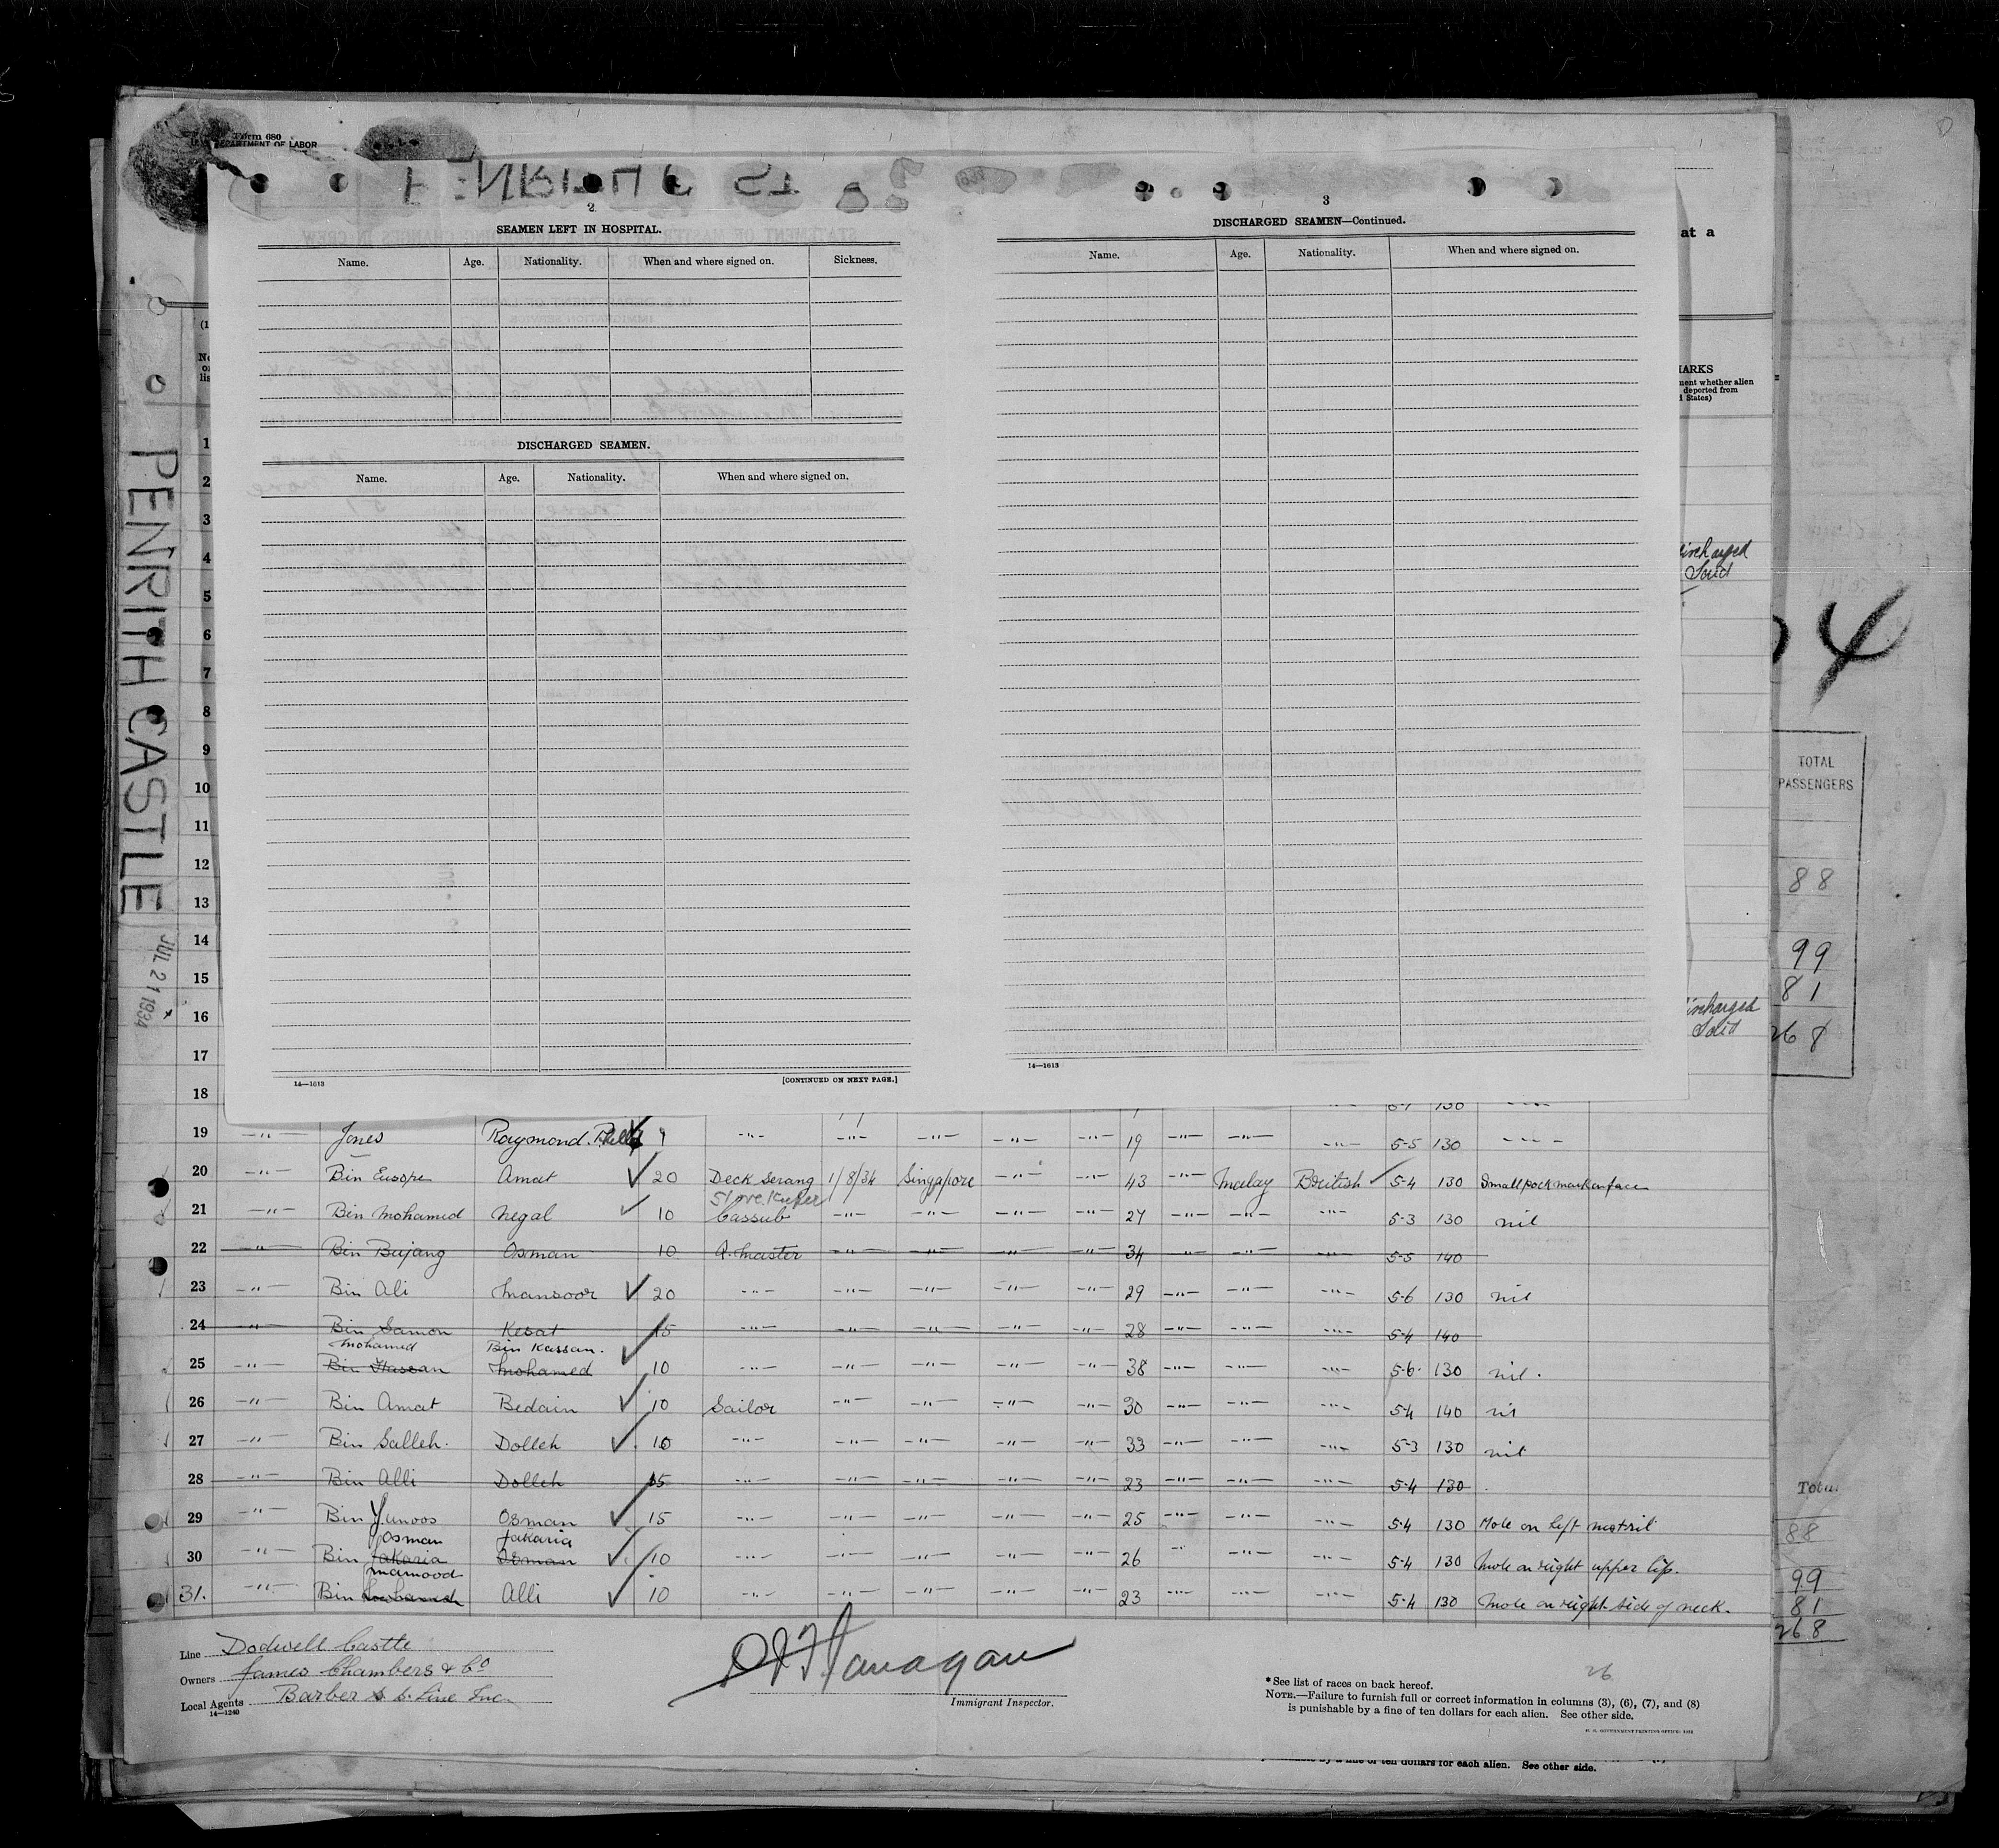 Form 680
U. S. DEPARTMENT OF LABOR
PENRITH CASTLE
JUL 21 1934
2
SEAMEN LEFT IN HOSPITAL.
Name. Age. Nationality. When and where signed on. Sickness.
DISCHARGED SEAMEN.
Name. Age. Nationality. When and where signed on.
14—1613 [CONTINUED ON NEXT PAGE.]
3
DISCHARGED SEAMEN—Continued.
Name. Age. Nationality. When and where signed on.
14—1613
at a
ment whether alien
deported from
States)
4
TOTAL
PASSENGERS
88
99
81
268
1
2
3
4
5
6
7
8
9
10
11
12
13
14
15
16
17
18
19 —"— Jones Raymond 9 —"— —"— —"— —"— —"— 19 —"— —"— —"— 5-5 130 —"—
20 —"— Bin Eusope Amat ✓ 20 Deck Serang 1/8/34 Singapore —"— —"— 43 —"— Malay British ✓ 5-4 130 Small pock mark on face
Store Keeper
21 —"— Bin Mohamed Negal ✓ 10 Cassub —"— —"— —"— —"— 27 —"— —"— —"— 5-3 130 nil
22 —"— Bin Bujang Osman 10 Q. Master —"— —"— —"— —"— 34 —"— —"— —"— 5-5 140
23 —"— Bin Ali Mansoor ✓ 20 —"— —"— —"— —"— —"— 29 —"— —"— —"— 5-6 130 nil
24 —"— Bin Samon Kesat 15 —"— —"— —"— —"— —"— 28 —"— —"— —"— 5-4 140
Mohamed Bin Kassan.
25 —"— Bin Hassan Mohamed ✓ 10 —"— —"— —"— —"— —"— 38 —"— —"— —"— 5-6 130 nil.
26 —"— Bin Amat Bedain ✓ 10 Sailor —"— —"— —"— —"— 30 —"— —"— —"— 5-4 140 nil
27 —"— Bin Salleh. Dolleh ✓ 10 —"— —"— —"— —"— —"— 33 —"— —"— —"— 5-3 130 nil
28 —"— Bin Alli Dolleh 15 —"— —"— —"— —"— —"— 23 —"— —"— —"— 5-4 130
29 —"— Bin Yunoos Osman ✓ 15 —"— —"— —"— —"— —"— 25 —"— —"— —"— 5-4 130 Mole on left nostril
Osman Jakaria
30 —"— Bin Jakaria Osman ✓ 10 —"— —"— —"— —"— —"— 26 —"— —"— —"— 5-4 130 Mole on right upper lip.
Mamood
31. —"— Bin Alli ✓ 10 —"— —"— —"— —"— —"— 23 —"— —"— —"— 5-4 130 Mole on right side of neck.
Total
88
99
81
268
Line Dodwell Castle
Owners James Chambers & Co
Local Agents Barber S. S. Line Inc
14—1240
Flanagan
Immigrant Inspector.
26
* See list of races on back hereof.
NOTE.—Failure to furnish full or correct information in columns (3), (6), (7), and (8)
is punishable by a fine of ten dollars for each alien. See other side.
U. S. GOVERNMENT PRINTING OFFICE
by a fine of ten dollars for each alien. See other side.